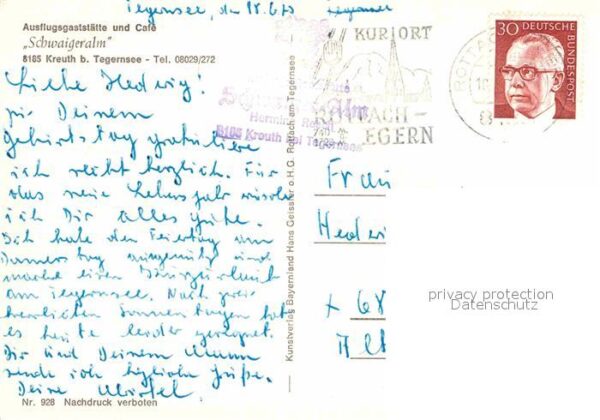 Tegernsee, den 18.6.73
Ausflugsgaststätte und Café
"Schwaigeralm"
8185 Kreuth b. Tegernsee - Tel. 08029/272
Liebe Hedwig!
zu Deinem
Geburtstag gratuliere
ich recht herzlich. Für
das neue Lebensjahr wünsche
ich Dir alles Gute.
Ich habe den Feiertag am
Donnerstag ausgenützt und
mache einen Kurzurlaub
am Tegernsee. Nach zwei
herrlichen Sonnentagen hat
es heute leider geregnet.
Dir und Deinem Mann
sende ich herzliche Grüße.
Deine
Nr. 928 Nachdruck verboten
Kunstverlag Bayernland Hans Geissler o.H.G. Rottach am Tegernsee
8185 Kreuth bei Tegernsee
KURORT
ROTTACH-
EGERN
30 DEUTSCHE
BUNDESPOST
Frau
Hedwi
68
privacy protection
Datenschutz